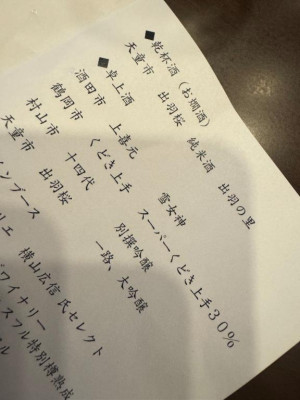 ◆乾杯酒（お燗酒）
天童市 出羽桜 純米酒 出羽の里
◆卓上酒
酒田市 上喜元 雪女神
鶴岡市 くどき上手 スーパーくどき上手30%
村山市 十四代 別撰吟醸
天童市 出羽桜 一路、大吟醸
インブース
リエ 横山広信 氏セレクト
ワイナリー
スフル特別樽熟成
ル